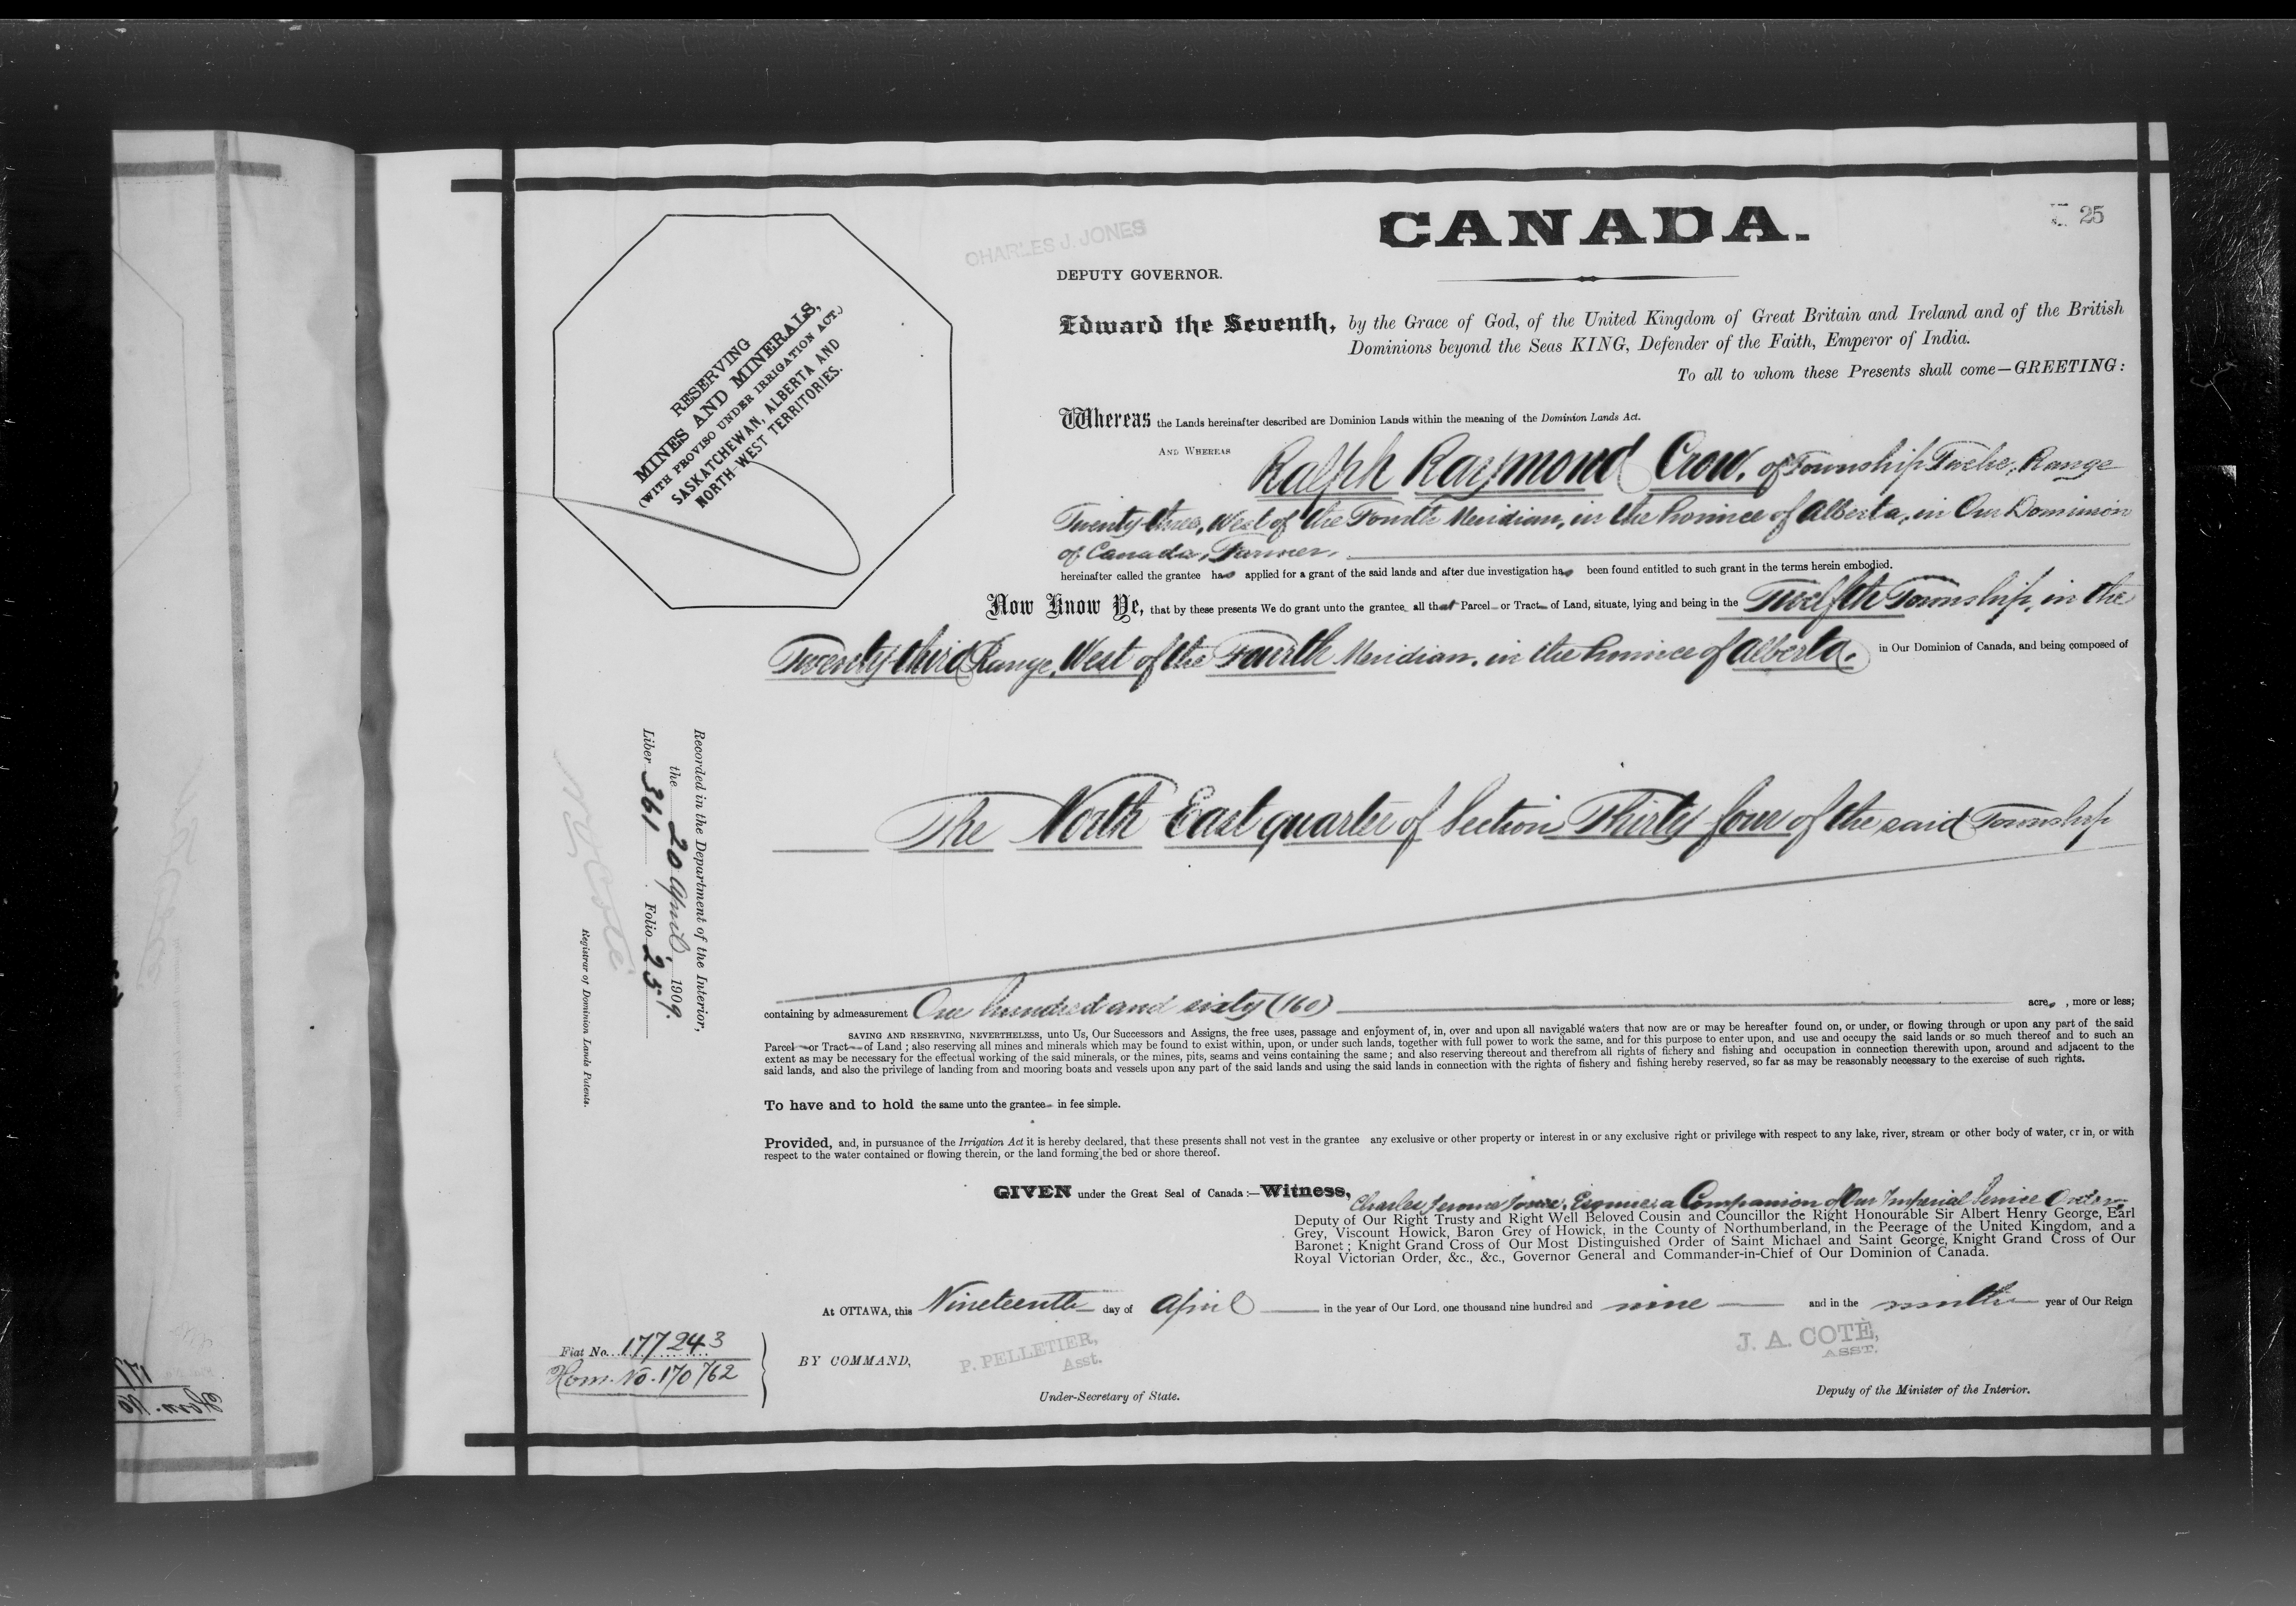 CANADA.
25
CHARLES J. JONES
DEPUTY GOVERNOR.
Edward the Seventh, by the Grace of God, of the United Kingdom of Great Britain and Ireland and of the British
Dominions beyond the Seas KING, Defender of the Faith, Emperor of India.
To all to whom these Presents shall come—GREETING:
RESERVING
MINES AND MINERALS,
(WITH PROVISO UNDER IRRIGATION ACT.)
SASKATCHEWAN, ALBERTA AND
NORTH-WEST TERRITORIES.
Whereas the Lands hereinafter described are Dominion Lands within the meaning of the Dominion Lands Act.
AND WHEREAS Ralph Raymond Crow, of Township Twelve, Range
Twenty-three, West of the Fourth Meridian, in the Province of Alberta, in Our Dominion
of Canada, Farmer,
hereinafter called the grantee has applied for a grant of the said lands and after due investigation has been found entitled to such grant in the terms herein embodied.
Now Know Ye, that by these presents We do grant unto the grantee all that Parcel or Tract of Land, situate, lying and being in the Twelfth Township, in the
Twenty-third Range, West of the Fourth Meridian, in the Province of Alberta, in Our Dominion of Canada, and being composed of
The North East quarter of Section Thirty four of the said Township
containing by admeasurement One hundred and sixty (160) acres, more or less;
SAVING AND RESERVING, NEVERTHELESS, unto Us, Our Successors and Assigns, the free uses, passage and enjoyment of, in, over and upon all navigable waters that now are or may be hereafter found on, or under, or flowing through or upon any part of the said
Parcel or Tract of Land; also reserving all mines and minerals which may be found to exist within, upon, or under such lands, together with full power to work the same, and for this purpose to enter upon, and use and occupy the said lands or so much thereof and to such an
extent as may be necessary for the effectual working of the said minerals, or the mines, pits, seams and veins containing the same; and also reserving thereout and therefrom all rights of fishery and fishing and occupation in connection therewith upon, around and adjacent to the
said lands, and also the privilege of landing from and mooring boats and vessels upon any part of the said lands and using the said lands in connection with the rights of fishery and fishing hereby reserved, so far as may be reasonably necessary to the exercise of such rights.
To have and to hold the same unto the grantee in fee simple.
Provided, and, in pursuance of the Irrigation Act it is hereby declared, that these presents shall not vest in the grantee any exclusive or other property or interest in or any exclusive right or privilege with respect to any lake, river, stream or other body of water, or in, or with
respect to the water contained or flowing therein, or the land forming the bed or shore thereof.
GIVEN under the Great Seal of Canada:—Witness, Charles Jerome Jones, Esquire, a Companion of Our Imperial Service Order,
Deputy of Our Right Trusty and Right Well Beloved Cousin and Councillor the Right Honourable Sir Albert Henry George, Earl
Grey, Viscount Howick, Baron Grey of Howick, in the County of Northumberland, in the Peerage of the United Kingdom, and a
Baronet; Knight Grand Cross of Our Most Distinguished Order of Saint Michael and Saint George, Knight Grand Cross of Our
Royal Victorian Order, &c., &c., Governor General and Commander-in-Chief of Our Dominion of Canada.
At OTTAWA, this Nineteenth day of April in the year of Our Lord, one thousand nine hundred and nine and in the ninth year of Our Reign
BY COMMAND,
P. PELLETIER,
Asst.
Under-Secretary of State.
J. A. COTÉ,
ASST.
Deputy of the Minister of the Interior.
Fiat No. 177243
Hom. No. 170762
Recorded in the Department of the Interior,
the 20 April, 1909.
Liber 361 Folio 25
N. O. Coté
Registrar of Dominion Lands Patents.